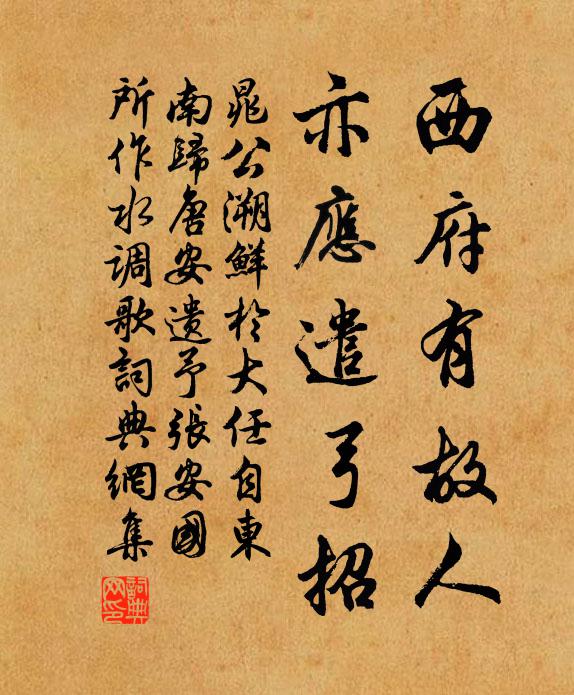 西府有故人
亦應遣弓招
晁公溯鮮於大任自東
南歸唐安遺予張安國
所作水调歌詞典網集
詞典網印